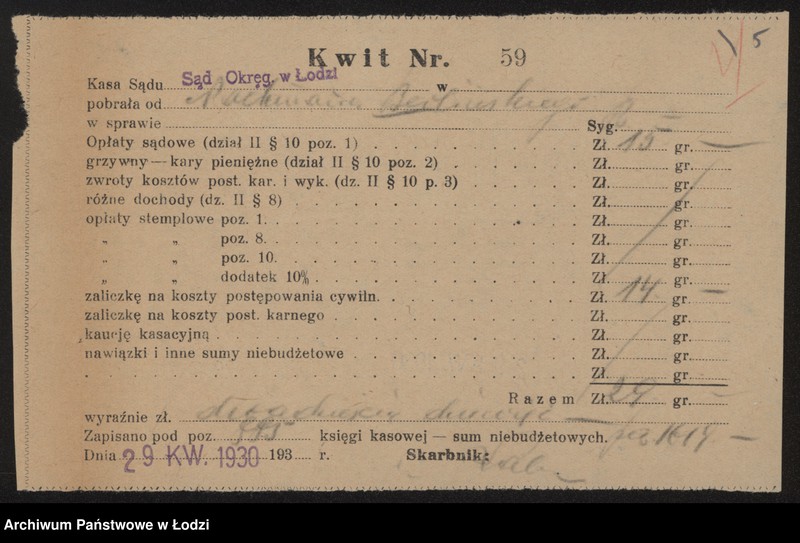 5
Kwit Nr. 59
Kasa Sądu Sąd Okręg. w Łodzi w
pobrała od
w sprawie Syg.
Opłaty sądowe (dział II § 10 poz. 1) Zł. 15 gr. —
grzywny — kary pieniężne (dział II § 10 poz. 2) Zł. gr.
zwroty kosztów post. kar. i wyk. (dz. II § 10 p. 3) Zł. gr.
różne dochody (dz. II § 8) Zł. gr.
opłaty stemplowe poz. 1. Zł. gr.
„ „ poz. 8. Zł. gr.
„ „ poz. 10. Zł. gr.
„ „ dodatek 10% Zł. gr.
zaliczkę na koszty postępowania cywiln. Zł. 14 gr. —
zaliczkę na koszty post. karnego Zł. gr.
kaucję kasacyjną Zł. gr.
nawiązki i inne sumy niebudżetowe Zł. gr.
Zł. gr.
Razem Zł. 29 gr.
wyraźnie zł. dwadzieścia dziewięć
Zapisano pod poz. księgi kasowej — sum niebudżetowych.
Dnia 29 KW. 1930 193 r. Skarbnik:
Archiwum Państwowe w Łodzi